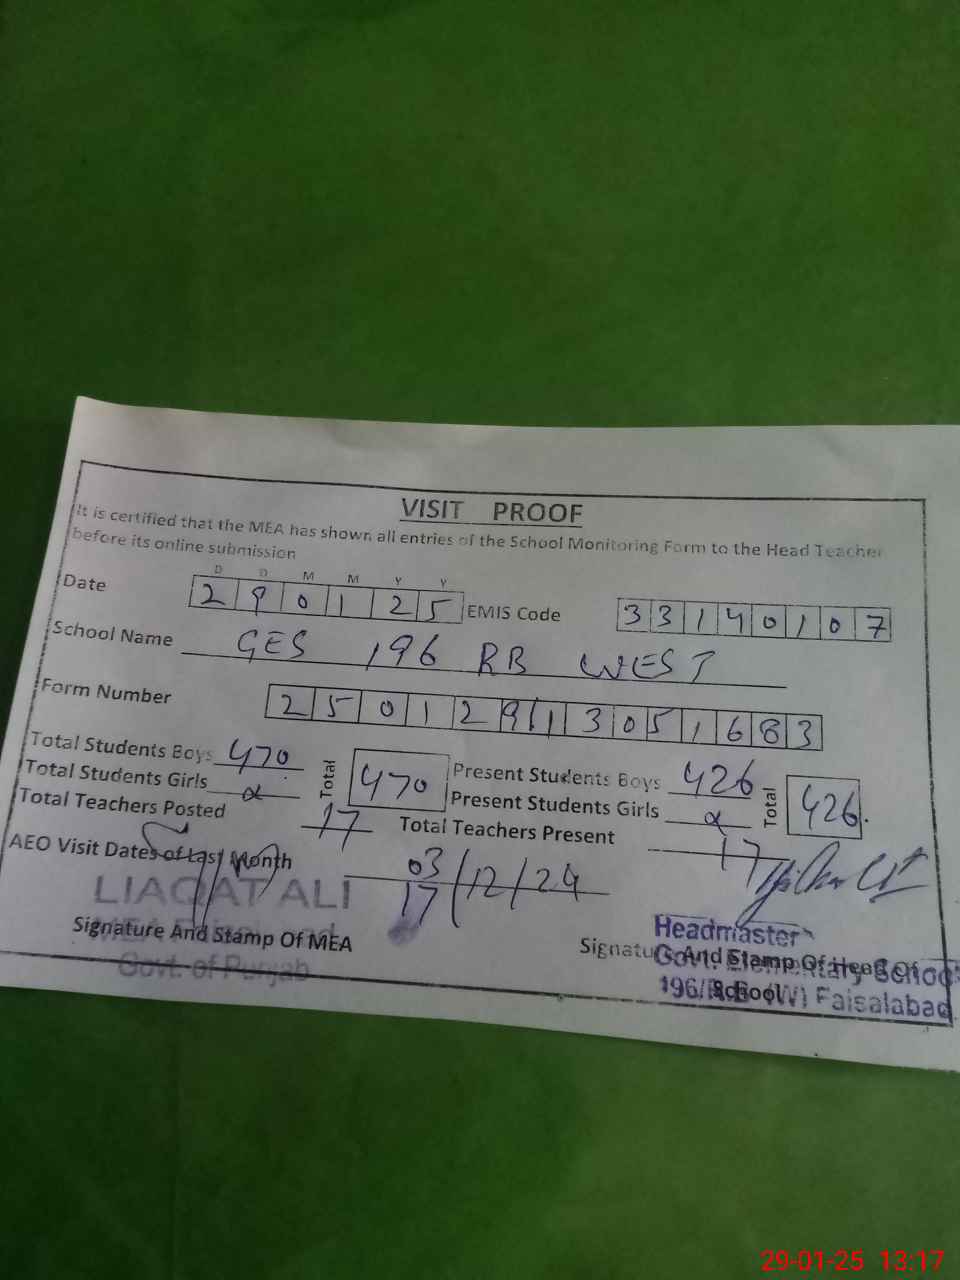 VISIT PROOF
It is certified that the MEA has shown all entries of the School Monitoring Form to the Head Teacher
before its online submission
D D M M Y Y
Date 2 9 0 1 2 5 EMIS Code 3 3 1 4 0 1 0 7
School Name GES 196 RB WEST
Form Number 2 5 0 1 2 9 1 1 3 0 5 1 6 8 3
Total Students Boys 470 Total 470 Present Students Boys 426 Total 426
Total Students Girls Present Students Girls
Total Teachers Posted 17 Total Teachers Present 17
AEO Visit Dates of Last Month 03/12/24
17
LIAQAT ALI
Signature And Stamp Of MEA
Govt. of Punjab
Headmaster
Signature And Stamp Of Head Of
School
Govt. Elementary School
196/R.B (W) Faisalabad
29-01-25 13:17